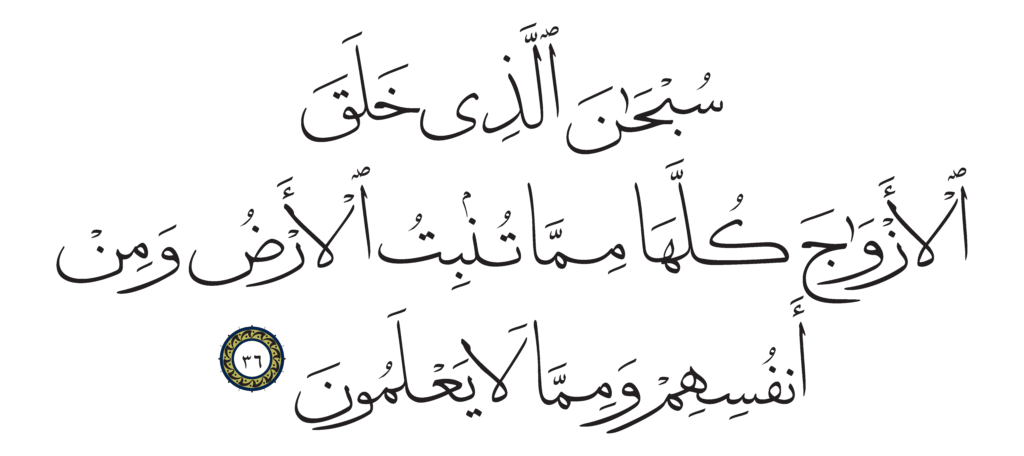 سُبْحَـٰنَ ٱلَّذِى خَلَقَ
ٱلْأَزْوَٰجَ كُلَّهَا مِمَّا تُنۢبِتُ ٱلْأَرْضُ وَمِنْ
أَنفُسِهِمْ وَمِمَّا لَا يَعْلَمُونَ ٣٦